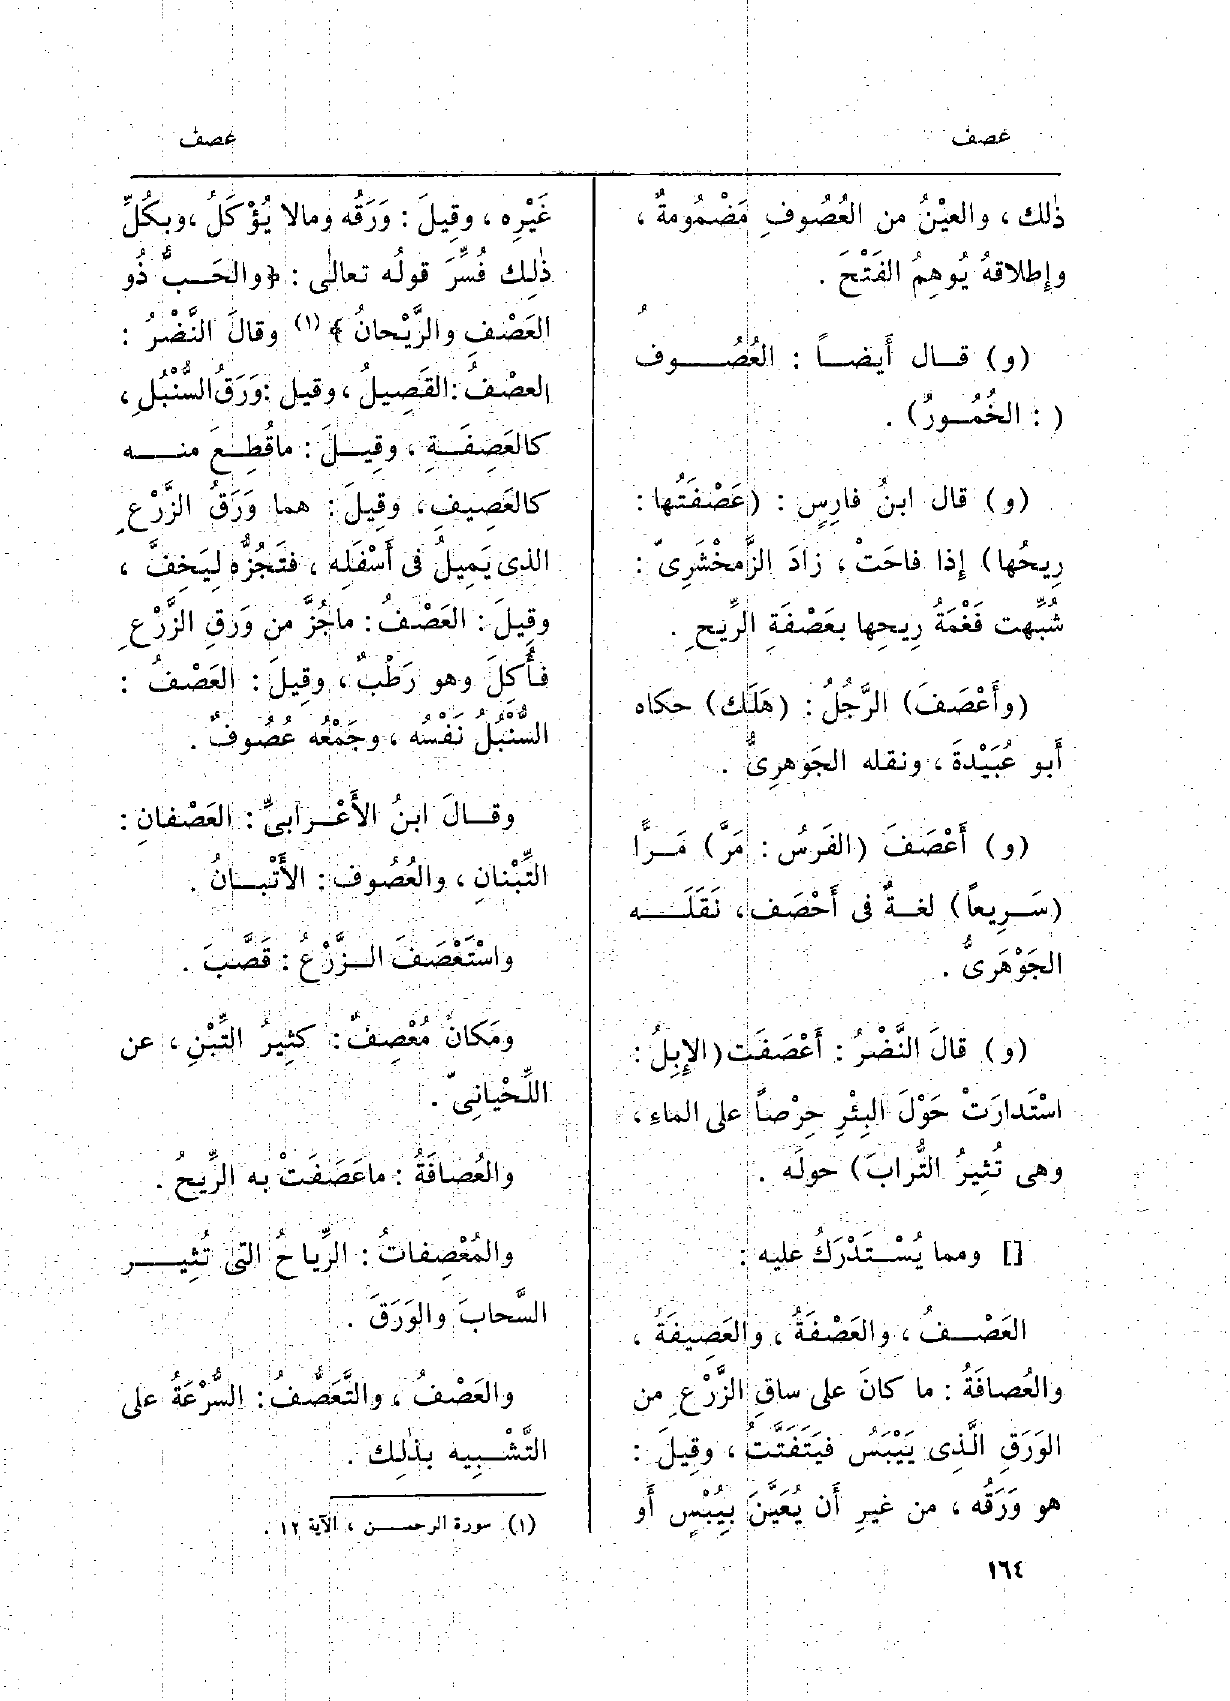 عصف
عصف
ذٰلك ، والعيْنُ من العُصُوفِ مَضْمُومةٌ ،
وإطلاقهُ يُوهِمُ الفَتْحَ .
(و) قـال أَيضـاً : العُصُـــوف
( : الخُمُـورُ) .
(و) قال ابنُ فارِسٍ : (عَصْفَتُها :
رِيحُها) إذا فاحَتْ ، زادَ الزَّمخْشَرِىّ :
شُبِّهت فَغْمَةُ رِيحِها بعَصْفَةِ الرِّيح .
(وأَعْصَفَ) الرَّجُلُ : (هَلَك) حكاه
أَبو عُبَيْدةَ ، ونقله الجَوهرِىُّ .
(و) أَعْصَفَ (الفَرَسُ : مَرَّ) مَـرًّا
(سَـرِيعاً) لغـةٌ فى أَحْصَف ، نَقَلَــه
الجَوْهَرِىُّ .
(و) قالَ النَّضْرُ : أَعْصَفَت (الإِبِلُ :
اسْتَدارَتْ حَوْلَ البِئْرِ حِرْصاً على الماءِ ،
وهى تُثِيرُ التُّرابَ) حولَه .
[] ومما يُسْـتَدْرَكُ عليه :
العَصْـفُ ، والعَصْفَةُ ، والعَصِيفَةُ ،
والعُصافَةُ : ما كانَ على ساقِ الزَّرْعِ من
الوَرَقِ الَّذِى يَيْبَس فيَتَفَتَّتُ ، وقِيلَ :
هو وَرَقُه ، من غيرِ أَن يُعَيَّنَ بِيُبْسٍ أَو
غَيْرِه ، وقِيلَ : وَرَقُه ومالا يُؤْكَلُ ، وبكُلِّ
ذٰلِك فُسِّرَ قولُه تعالٰى : ﴿والحَـبُّ ذُو
العَصْفِ والرَّيْحانُ ﴾ (١) وقالَ النَّضْرُ :
العصْفُ : القَصِيلُ ، وقيل : وَرَقُ السُّنْبُلِ ،
كالعَصِفَـةِ ، وقِيـلَ : ماقُطِـعَ منــه
كالعَصِيفِ ، وقِيلَ : هما وَرَقُ الزَّرْعِ
الذى يَمِيلُ فى أَسْفَلِه ، فتَجُزُّه لِيَخِفَّ ،
وقِيلَ : العَصْفُ : ماجُزَّ من وَرَقِ الزَّرْعِ
فأُكِلَ وهو رَطْبٌ ، وقِيلَ : العَصْفُ :
السُّنْبُلُ نَفْسُه ، وجَمْعُه عُصُوفٌ .
وقـالَ ابنُ الأَعْـرابىِّ : العَصْفانِ :
التِّبْنانِ ، والعُصُوف : الأَتْبـانُ .
واسْتَعْصَفَ الـزَّرْعُ : قَصَّبَ .
ومَكانٌ مُعْصِفٌ : كثِيرُ التِّبْنِ ، عن
اللِّحْيانِىّ .
والعُصافَةُ : ماعَصَفَتْ به الرِّيحُ .
والمُعْصِفاتُ : الرِّياحُ التى تُثِيــر
السَّحابَ والوَرَقَ .
والعَصْفُ ، والتَّعَصُّفُ : السُّرْعَةُ على
التَّشْـبِيه بذٰلِك .
(١) سورة الرحمـــن ، الآية ١٢ .
١٦٤